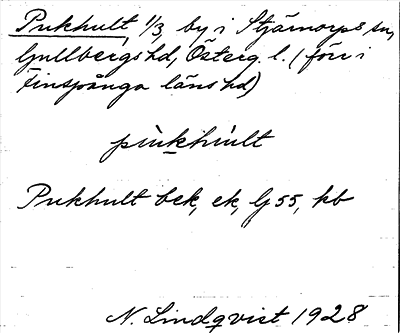 Pukhult, 1/3, by i Stjärnorps sn,
Gullbergs hd, Österg. l. (förr i
Finspånga läns hd)
pùkhùlt
Pukhult bek, ek, Gj 55, kb
N. Lindqvist 1928